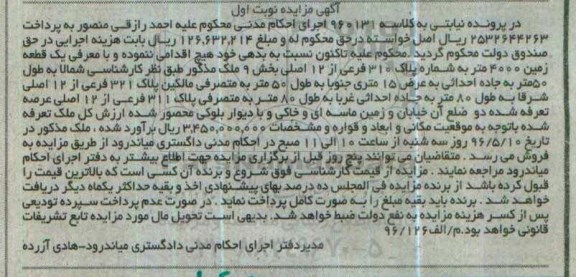 آگهی مزایده نوبت اول
در پرونده نیابتی به کلاسه ۹۶۰۱۳۱ اجرای احکام مدنی محکوم علیه احمد رازقی منصور به پرداخت
۲۵۳۲۶۴۴۲۶۳ ریال اصل خواسته در حق محکوم له و مبلغ ۱۲۶,۶۳۲,۲۱۴ ریال بابت هزینه اجرایی در حق
صندوق دولت محکوم گردید .محکوم علیه تاکنون نسبت به بدهی خود هیچ اقدامی ننموده و با معرفی یک قطعه
زمین ۴۰۰۰ متر به شماره پلاک ۳۱۰ فرعی از ۱۲ اصلی بخش ۹ ملک مذکور طبق نظر کارشناسی شمالا به طول
۵۰متر به جاده احداثی به عرض ۱۵ متری جنوبا به طول ۵۰ متر به متصرفی مالکین پلاک ۳۲۱ فرعی از ۱۲ اصلی
شرقا به طول ۸۰ متر به جاده احداثی غربا به طول ۸۰ متر به متصرفی پلاک ۳۱۱ فرعی از ۱۲ اصلی عرصه
تعرفه شده دو ضلع آن خیابان و زمین ماسه ای و خاکی و با دیوار بلوکی محصور شده ارزش کل ملک تعرفه
شده باتوجه به موقعیت مکانی و ابعاد و قواره و مشخصات ۳,۴۵۰,۰۰۰,۰۰۰ ریال برآورد شده ، ملک مذکور در
تاریخ ۹۶/۵/۱۰ روز سه شنبه از ساعت ۱۰ الی ۱۱ صبح در احکام مدنی دادگستری میاندرود از طریق مزایده به
فروش می رسد . متقاضیان می توانند پنج روز قبل از برگزاری مزایده جهت اطلاع بیشتر به دفتر اجرای احکام
میاندرود مراجعه نمایند . مزایده از قیمت کارشناسی فوق شروع و برنده آن کسی است که بالاترین قیمت را
قبول کرده باشد از برنده مزایده فی المجلس ده درصد بهای پیشنهادی اخذ و بقیه حداکثر یکماه دیگر دریافت
خواهد شد . برنده باید بقیه مبلغ را به صورت کامل پرداخت نماید . در صورت عدم پرداخت سپرده تودیعی
پس از کسر هزینه مزایده به نفع دولت ضبط خواهد شد. بدیهی است تحویل مال مورد مزایده تابع تشریفات
قانونی خواهد بود.م/الف ۹۶/۱۲۶
مدیردفتر اجرای احکام مدنی دادگستری میاندرود-هادی آزرده